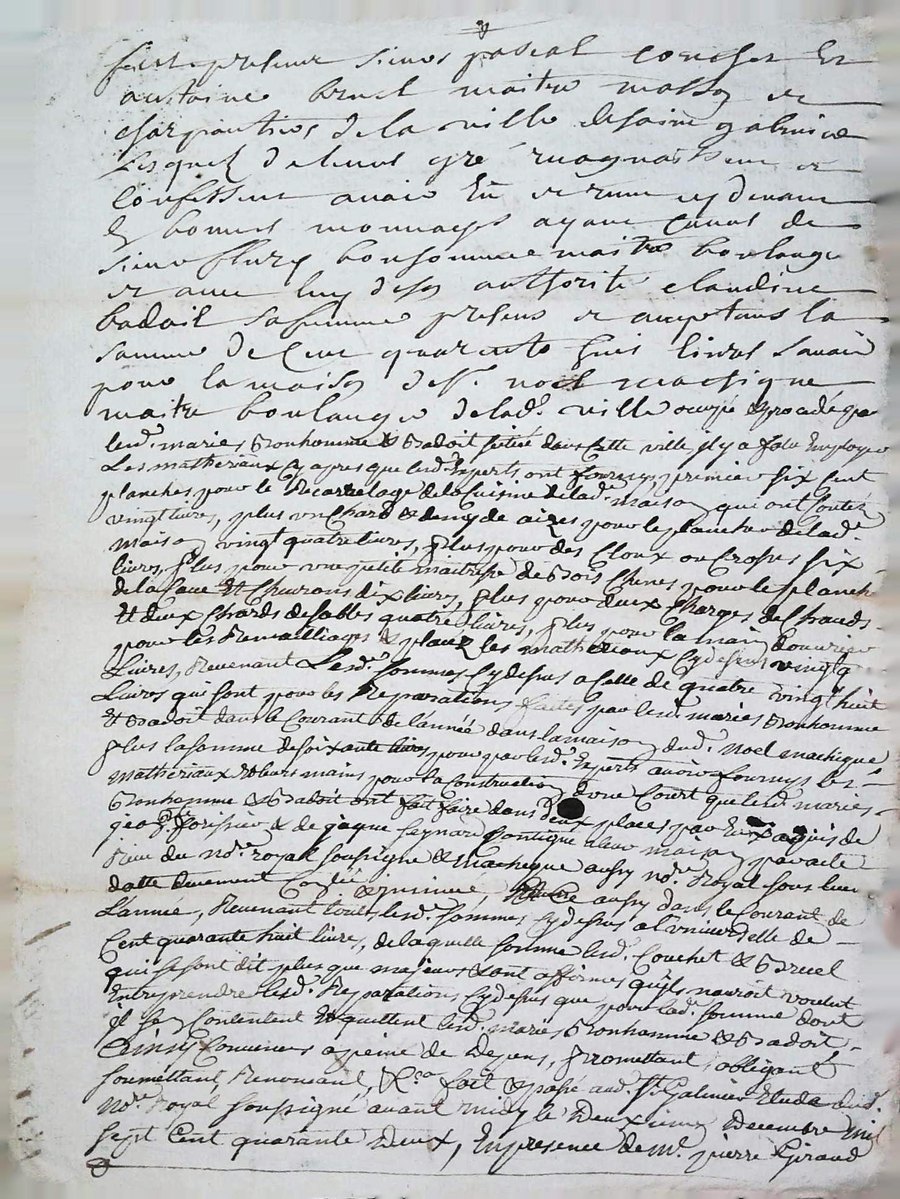 furent presens sieurs pascal couchet Et
antoine bruel maitre masson et
charpantier de la ville de saint galmier
Lesquel de leurs gré
confessent avoir Eu et receu cy devant
En bonnes monnoyes ayant Cours de
sieur fleury bonhomme maitre boulanger
et avec luy de son authorité claudine
badoil sa femme presens et acceptans la
somme de Cent quarante huit livres savoir
pour la maison de Sr. noel machique
maitre boulanger de lad. ville ocupé &
lesd. mariés Bonhomme & Badoit située dans Cette ville il y a
Les matheriaux Cy apres que lesd. Experts ont fournys premier six Cent
planches pour le Recarrelage de la Cuisine de lad. maison qui ont Coutés
vingt livres, plus un Chard & demy de aizes pour le plancher de lad.
maison vingt quatre livres, plus pour des Cloux six
livres, plus pour une petite de Bois Chene pour le planché
de la Cave Et Chevrons dix livres, plus pour deux Charges de Chauds
Et deux Chards de sables quatre livres, plus pour la main
pour les & placer les matheriaux Cy dessus vingt
Livres, Revenant Lesd. sommes Cy dessus a Celle de quatre vingt huit
Livres qui sont pour les Reparations faites par lesd. mariés Bonhomme
Et Badoit dans le Courant de l'année dans la maison dud. Noel machique
plus la somme de soixante livres pour par lesd. Experts avoir fournys les
matheriaux & leurs mains pour la Construction d'une Court que lesd. mariés
Bonhomme & Badoit ont fait faire dans deux places par Eux aquis de
& de leur maison par acte
Rieu du nore. royal soussigné & machique aussy nore. Royal sous leur
datte duement & aussy dans le Courant de
L'année, Revenant toutes lesd. sommes Cy dessus a l'universelle de
Cent quarante huit livres, de laquelle somme lesd. Couchet & Bruel
qui se sont dit plus que majeurs & ont affirmés qu'ils nauroit voulut
Entreprendre lesd. Reparations Cy dessus que pour lad. somme dont
il Contentent Et quittent lesd. mariés Bonhomme & Badoit
Ainsy Convenus a peine de Depens, promettant, obligeant
soumettant, Renonceant, &ca. fait & passé aud. St. Galmier Etude dud.
nore. Royal soussigné avant midy le Deuxieme Decembre mil
sept Cent quarante Deux, En presence de Me. pierre Giraud